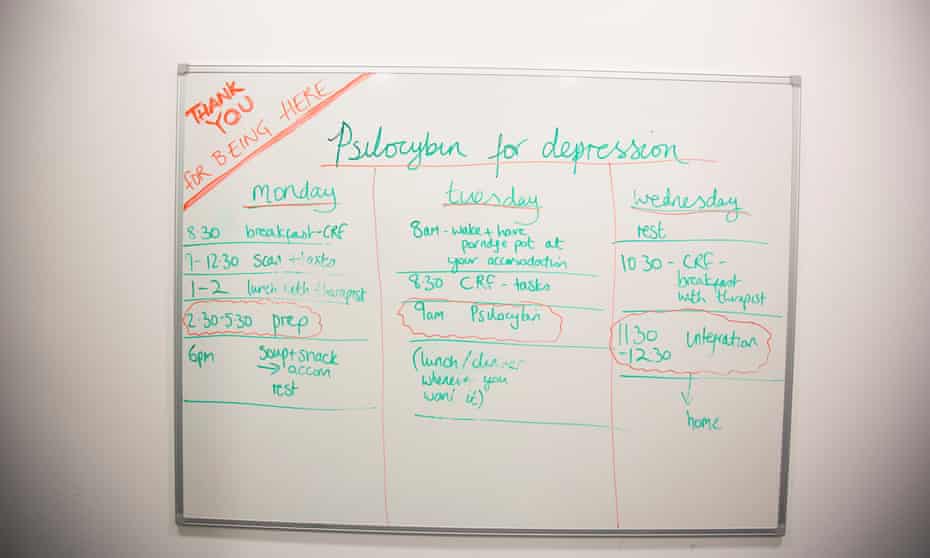 THANK
YOU
FOR BEING HERE
Psilocybin for depression
monday
8.30 breakfast-CRF
9-12:30 scan + tasks
1-2 lunch with therapist
2.30-5.30 prep
6pm soup + snack
→ accom
rest
tuesday
8am - wake + have
porridge pot at
your accomodation
8.30 CRF - tasks
9am Psilocybin
(lunch/dinner
whenever you
want it)
wednesday
rest
10.30 - CRF -
breakfast
with therapist
11.30 integration
-12.30
↓
home